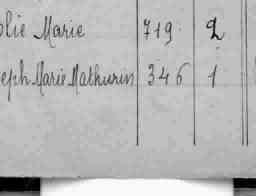 olie Marie 719. 2
seph Marie Mathurin 346 1